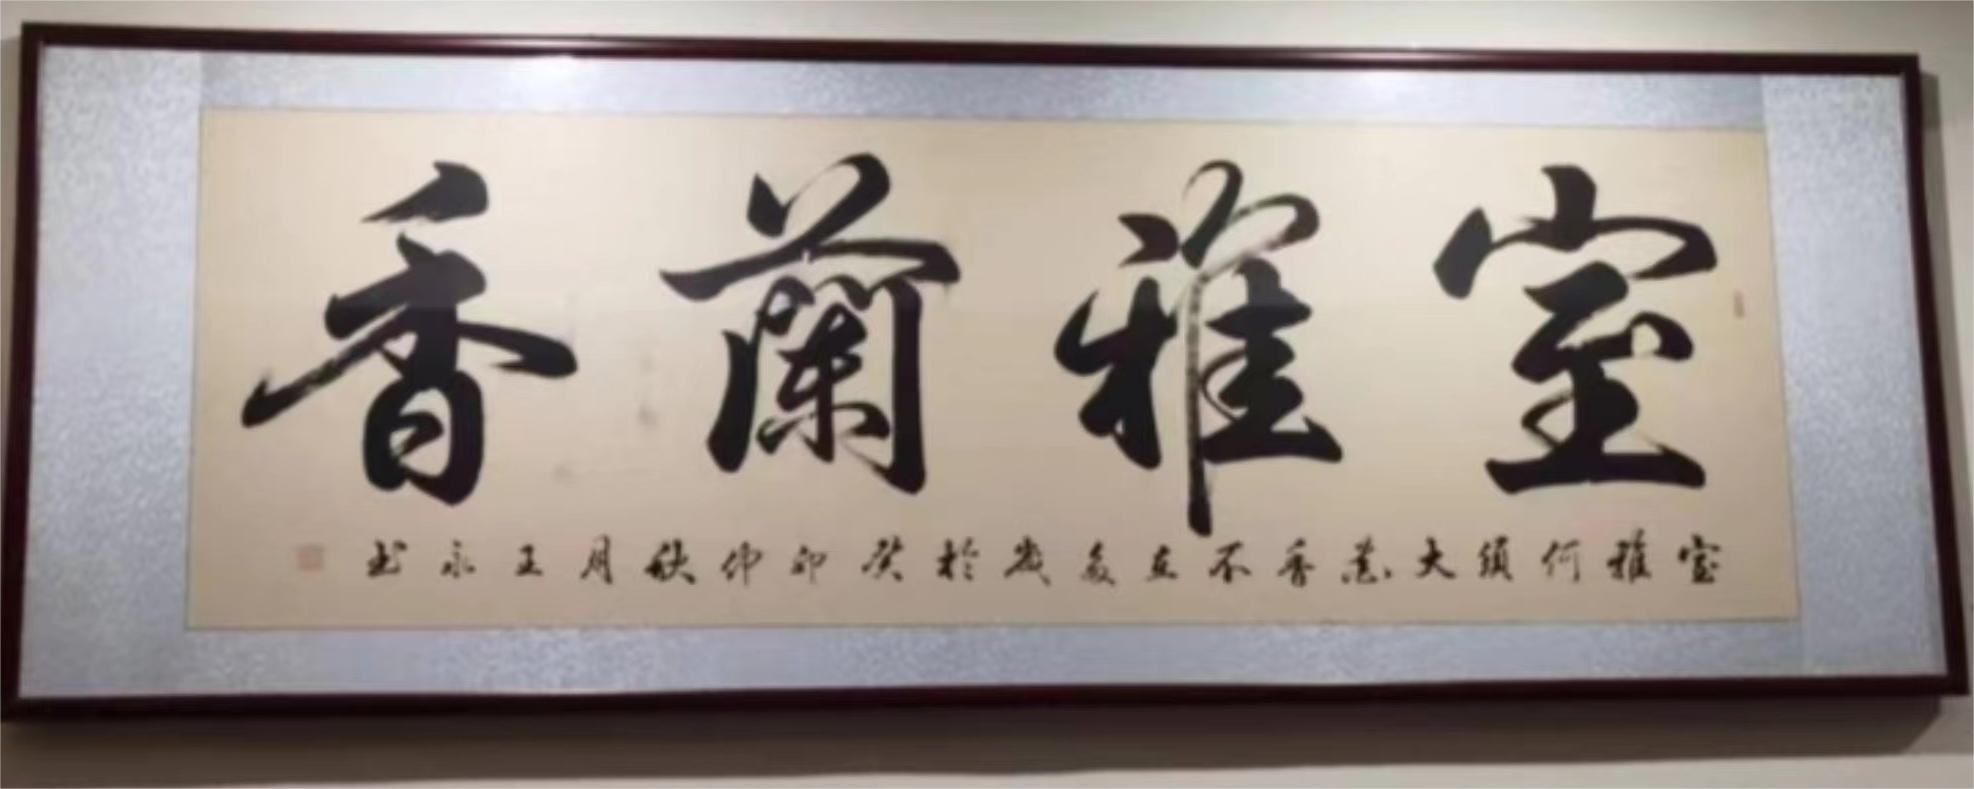 室雅蘭香
室雅何須大花香不在多歲於癸卯仲秋月王永书